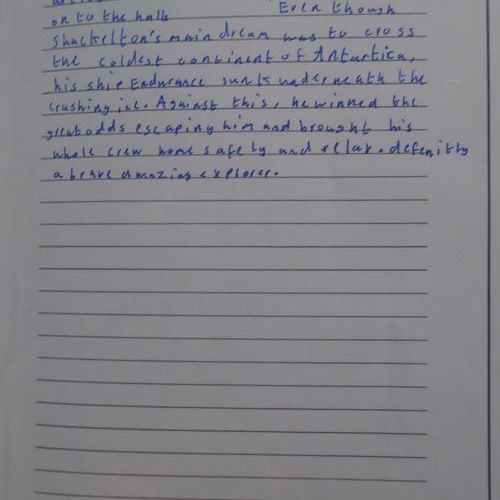 on to the halls Even though
Shackelton's main dream was to cross
the coldest continent of Antartica,
his ship Endurance sunk underneath the
crushing ice. Against this, he winned the
great odds escaping him and brought his
whole crew home safely and relax. defenitly
a brave amazing explorer.